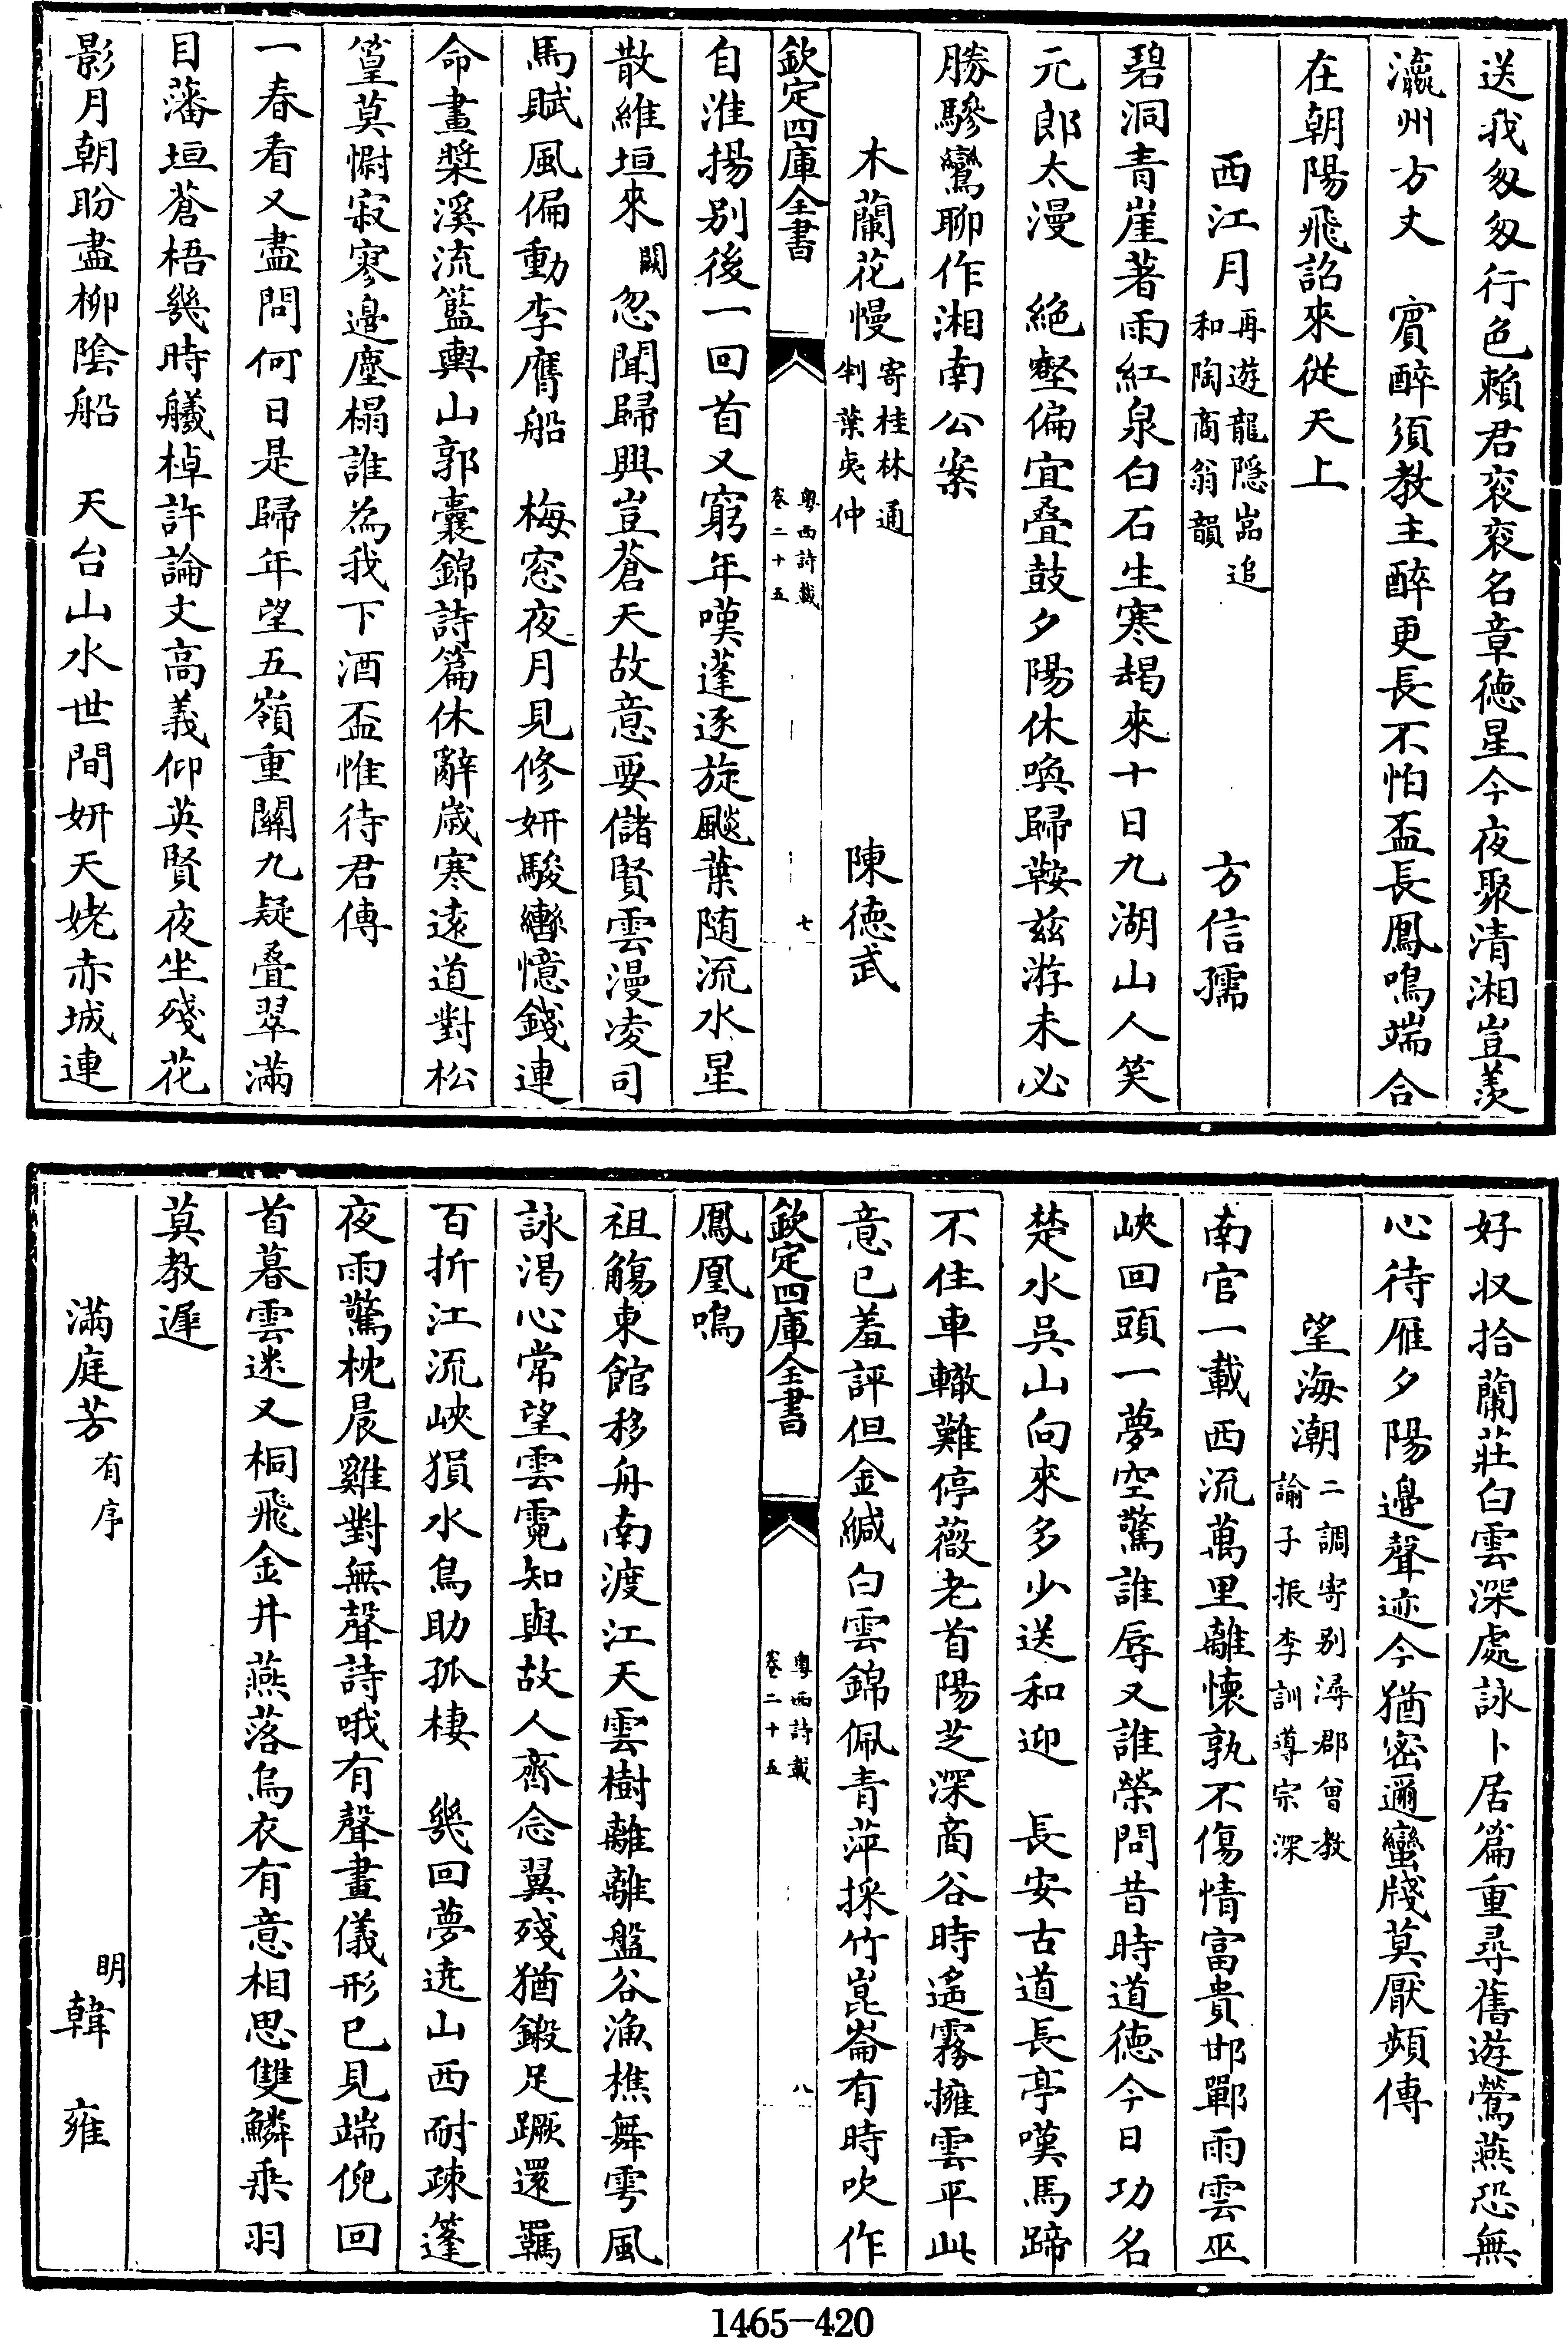 送我匆匆行色賴君衮衮名章徳星今夜聚清湘豈羡
瀛州方丈　賔醉須教主醉更長不怕盃長鳳鳴端合
在朝陽飛詔來從天上
西江月再遊龍隱嵓追和陶商翁韻　方信孺
碧洞青崖著雨紅泉白石生寒朅來十日九湖山人笑
元郎太漫　絶壑偏宜疊鼓夕陽休喚歸鞍兹游未必
勝驂鸞聊作湘南公案
木蘭花慢寄桂林通判葉夷仲　陳徳武
欽定四庫全書　粤西詩載卷二十五　七
自淮揚別後一回首又窮年嘆蓬逐旋飈葉随流水星
散維垣來闕忽聞歸興豈蒼天故意要儲賢雲漫凌司
馬賦風偏動李膺船　梅窓夜月見修妍駿轡憶錢連
命畫槳溪流籃輿山郭囊錦詩篇休辭嵗寒遠道對松
篁莫惻寂寥邉塵榻誰為我下酒盃惟待君傳
一春看又盡問何日是歸年望五嶺重關九疑疊翠滿
目藩垣蒼梧幾時艤棹許論文髙義仰英賢夜坐殘花
影月朝盼盡柳陰船　天台山水世間妍天姥赤城連
好收拾蘭莊白雲深處詠卜居篇重尋舊遊鶯燕恐無
心待雁夕陽邉聲迹今猶密邇蠻牋莫厭頻傳
望海潮二調寄别潯郡曾教諭子振李訓導宗深
南官一載西流萬里離懷孰不傷情富貴邯鄲雨雲巫
峽回頭一夢空驚誰辱又誰榮問昔時道徳今日功名
楚水吳山向來多少送和迎　長安古道長亭嘆馬蹄
不住車轍難停薇老首陽芝深商谷時遙霧擁雲平此
意已羞評但金緘白雲錦佩青萍採竹崑崙有時吹作
欽定四庫全書　粤西詩載卷二十五　八
鳳凰鳴
祖觴東館移舟南渡江天雲樹離離盤谷漁樵舞雩風
詠渴心常望雲霓知與故人齊念翼殘猶鎩足蹶還羈
百折江流峽猿水鳥助孤棲　幾回夢遶山西耐疎篷
夜雨驚枕晨雞對無聲詩哦有聲畫儀形已見端倪回
首暮雲迷又桐飛金井燕落烏衣有意相思雙鱗乘羽
莫教遲
滿庭芳有序　明韓雍
1465-420